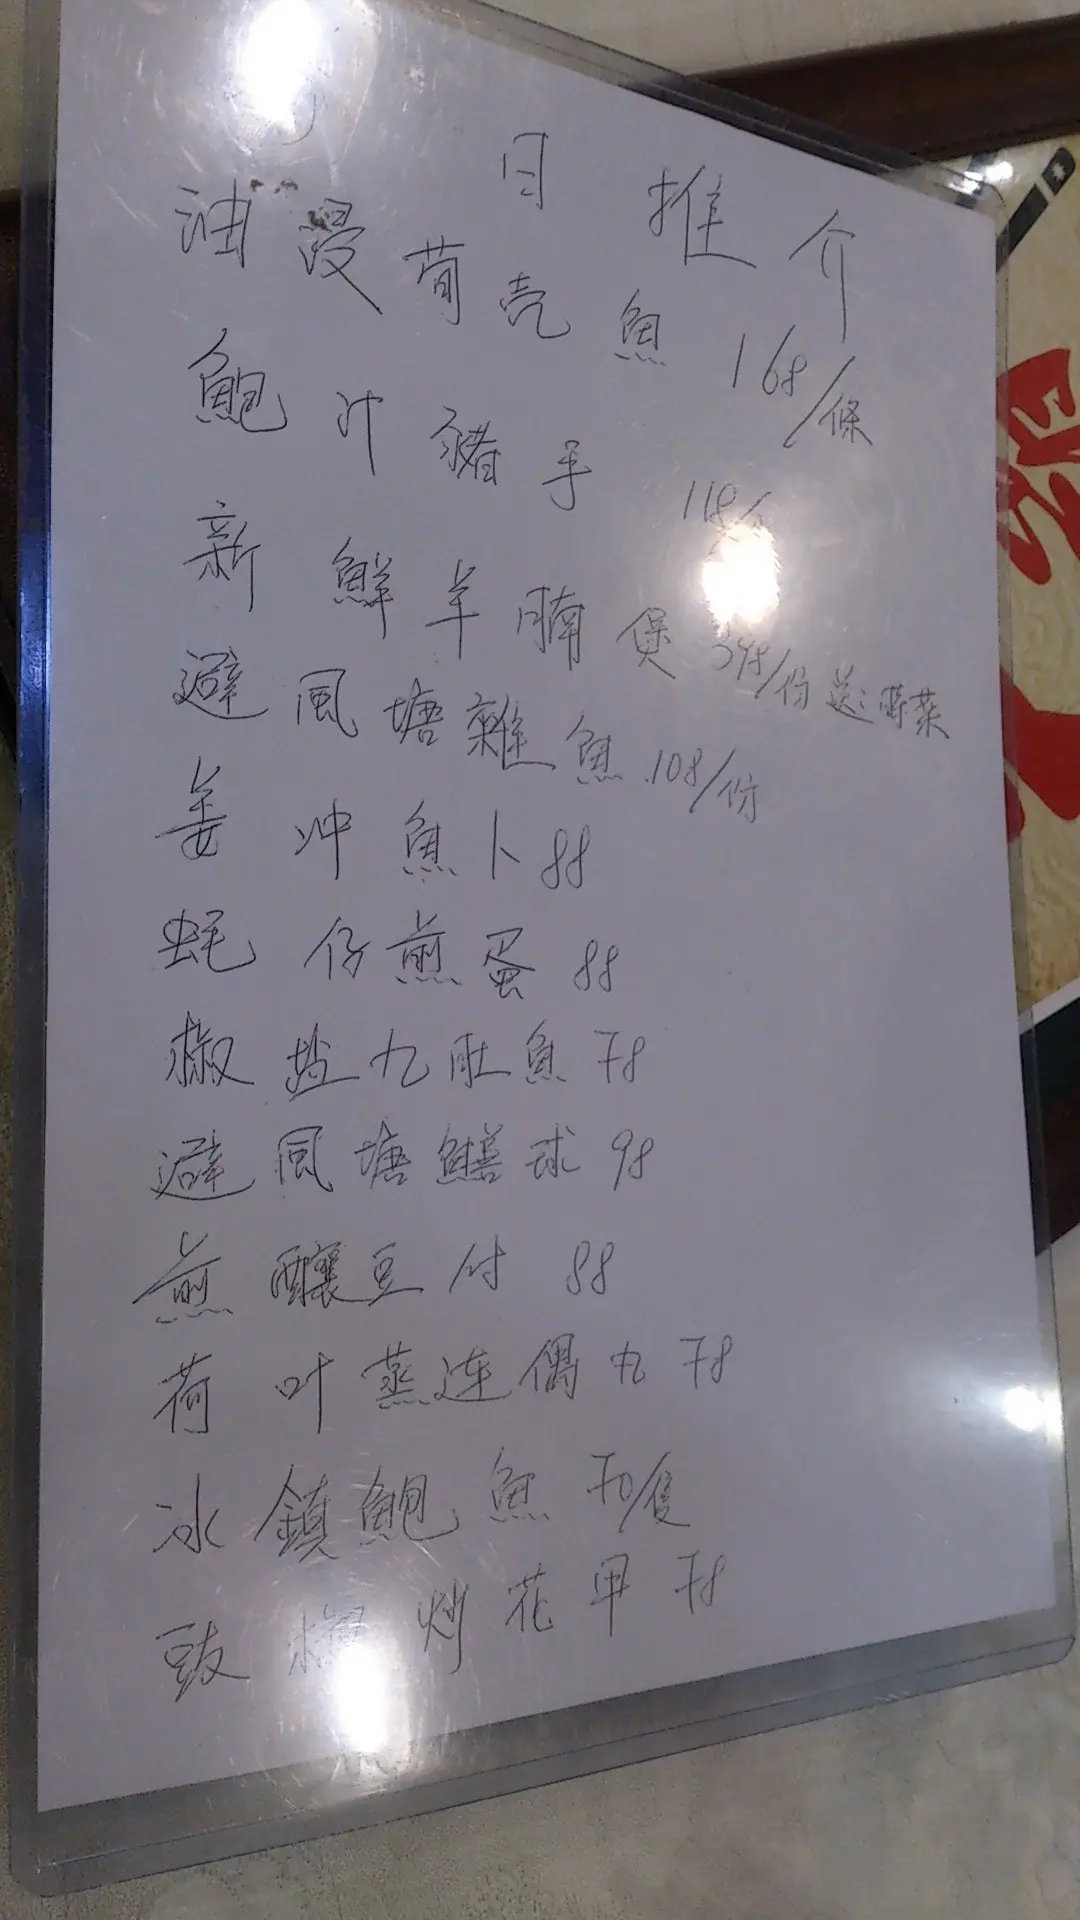 日推介
油浸荀壳魚 168/條
鮑汁豬手 118/
新鮮羊腩煲 398/份送時菜
避風塘雜魚 108/份
姜冲魚卜 88
蚝仔煎蛋 88
椒盐九肚魚 78
避風塘鱔球 98
煎釀豆付 88
荷叶蒸连偶九 78
冰鎮鮑魚 70/隻
豉椒炒花甲 78